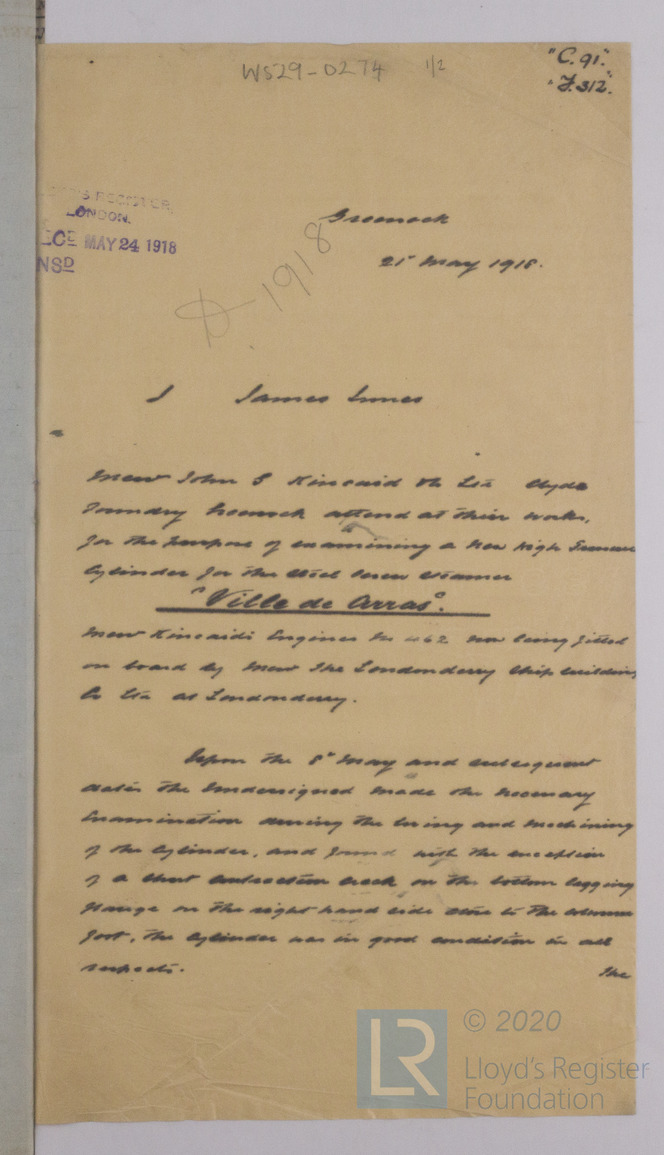 WS29-0274 1/2
"C. 91".
"F. 312".
REGISTER,
LONDON.
MAY 24 1918
Greenock
21st May 1918.
1918
I James Innes
Messrs John G Kincaid & Co Ltd Clyde
Foundry Greenock attend at their works,
for the purpose of examining a new High Pressure
Cylinder for the Steel Screw Steamer
"Ville de Arras".
Messrs Kincaids Engines No 462 now being fitted
on board by Messrs The Londonderry Shipbuilding
Co Ltd at Londonderry.
Upon the 8th May and subsequent
dates the Undersigned made the necessary
Examination during the boring and machining
of the Cylinder, and found with the exception
of a short contraction crack on the bottom lagging
flange on the right hand side close to the column
foot, the Cylinder was in good condition in all
respects.
The
LR
© 2020
Lloyd's Register
Foundation